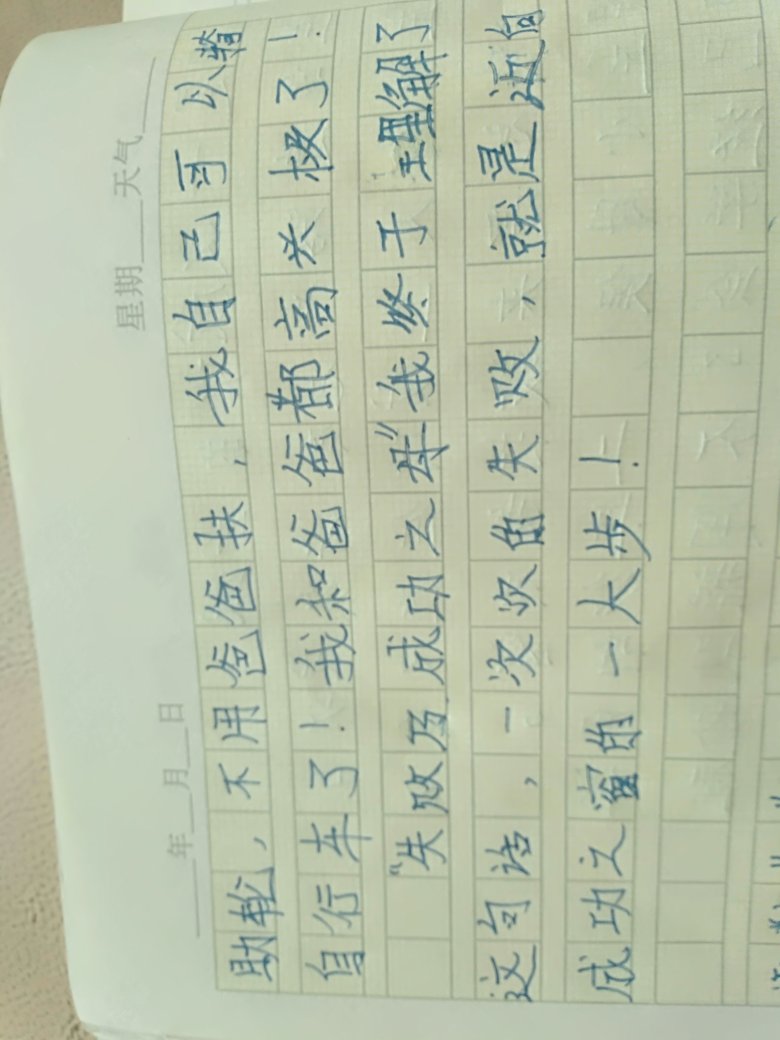 年 月 日 星期 天气
助轮，不用爸爸扶，我自己可以骑
自行车了！我和爸爸都高兴极了！
“失败乃成功之母”我终于理解了
这句话，一次次的失败，就是迈向
成功之窗的一大步！